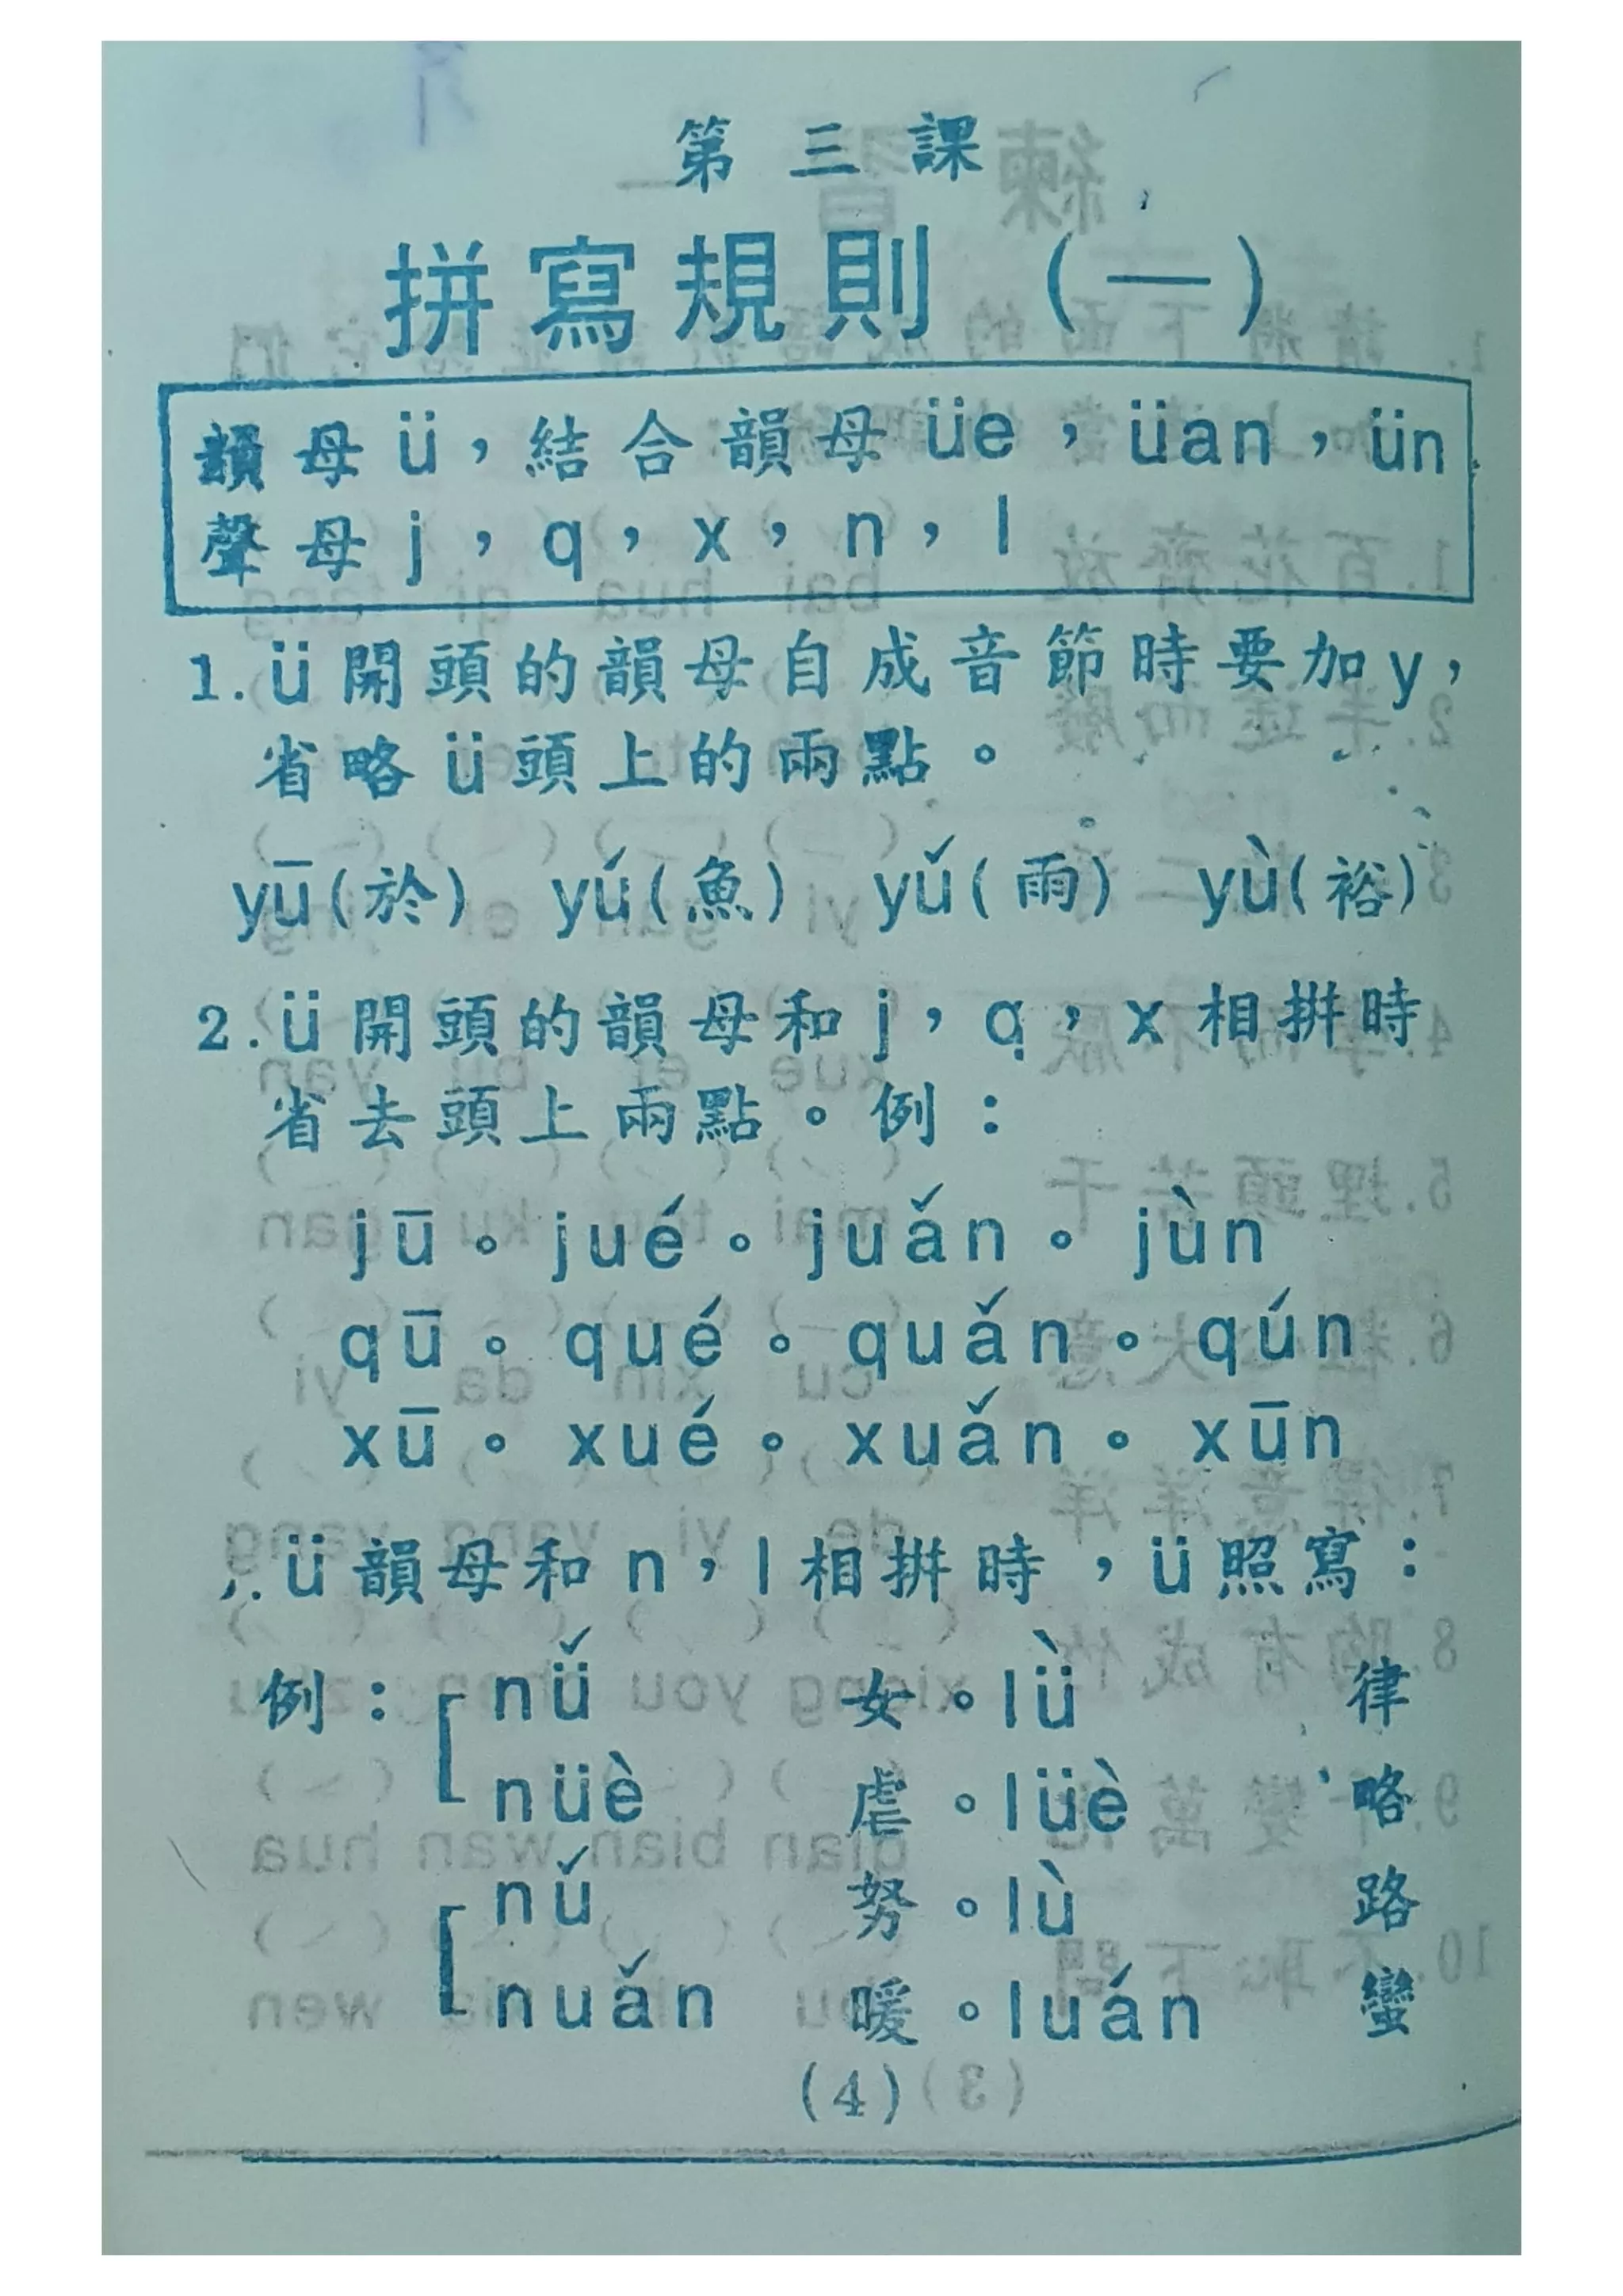 第三課
拼寫規則（一）
韻母ü，結合韻母üe，üan，ün
聲母j，q，x，n，l
1.ü開頭的韻母自成音節時要加y，
省略ü頭上的兩點。
yū(於) yú(魚) yǔ(雨) yù(裕)
2.ü開頭的韻母和j，q，x相拼時
省去頭上兩點。例：
jū。jué。juǎn。jùn
qū。qué。quǎn。qún
xū。xué。xuǎn。xūn
ü韻母和n，l相拼時，ü照寫：
例：nǚ 女。lǜ 律
nüè 虐。lüè 略
nǔ 努。lù 路
nuǎn 暖。luán 蠻
(4)